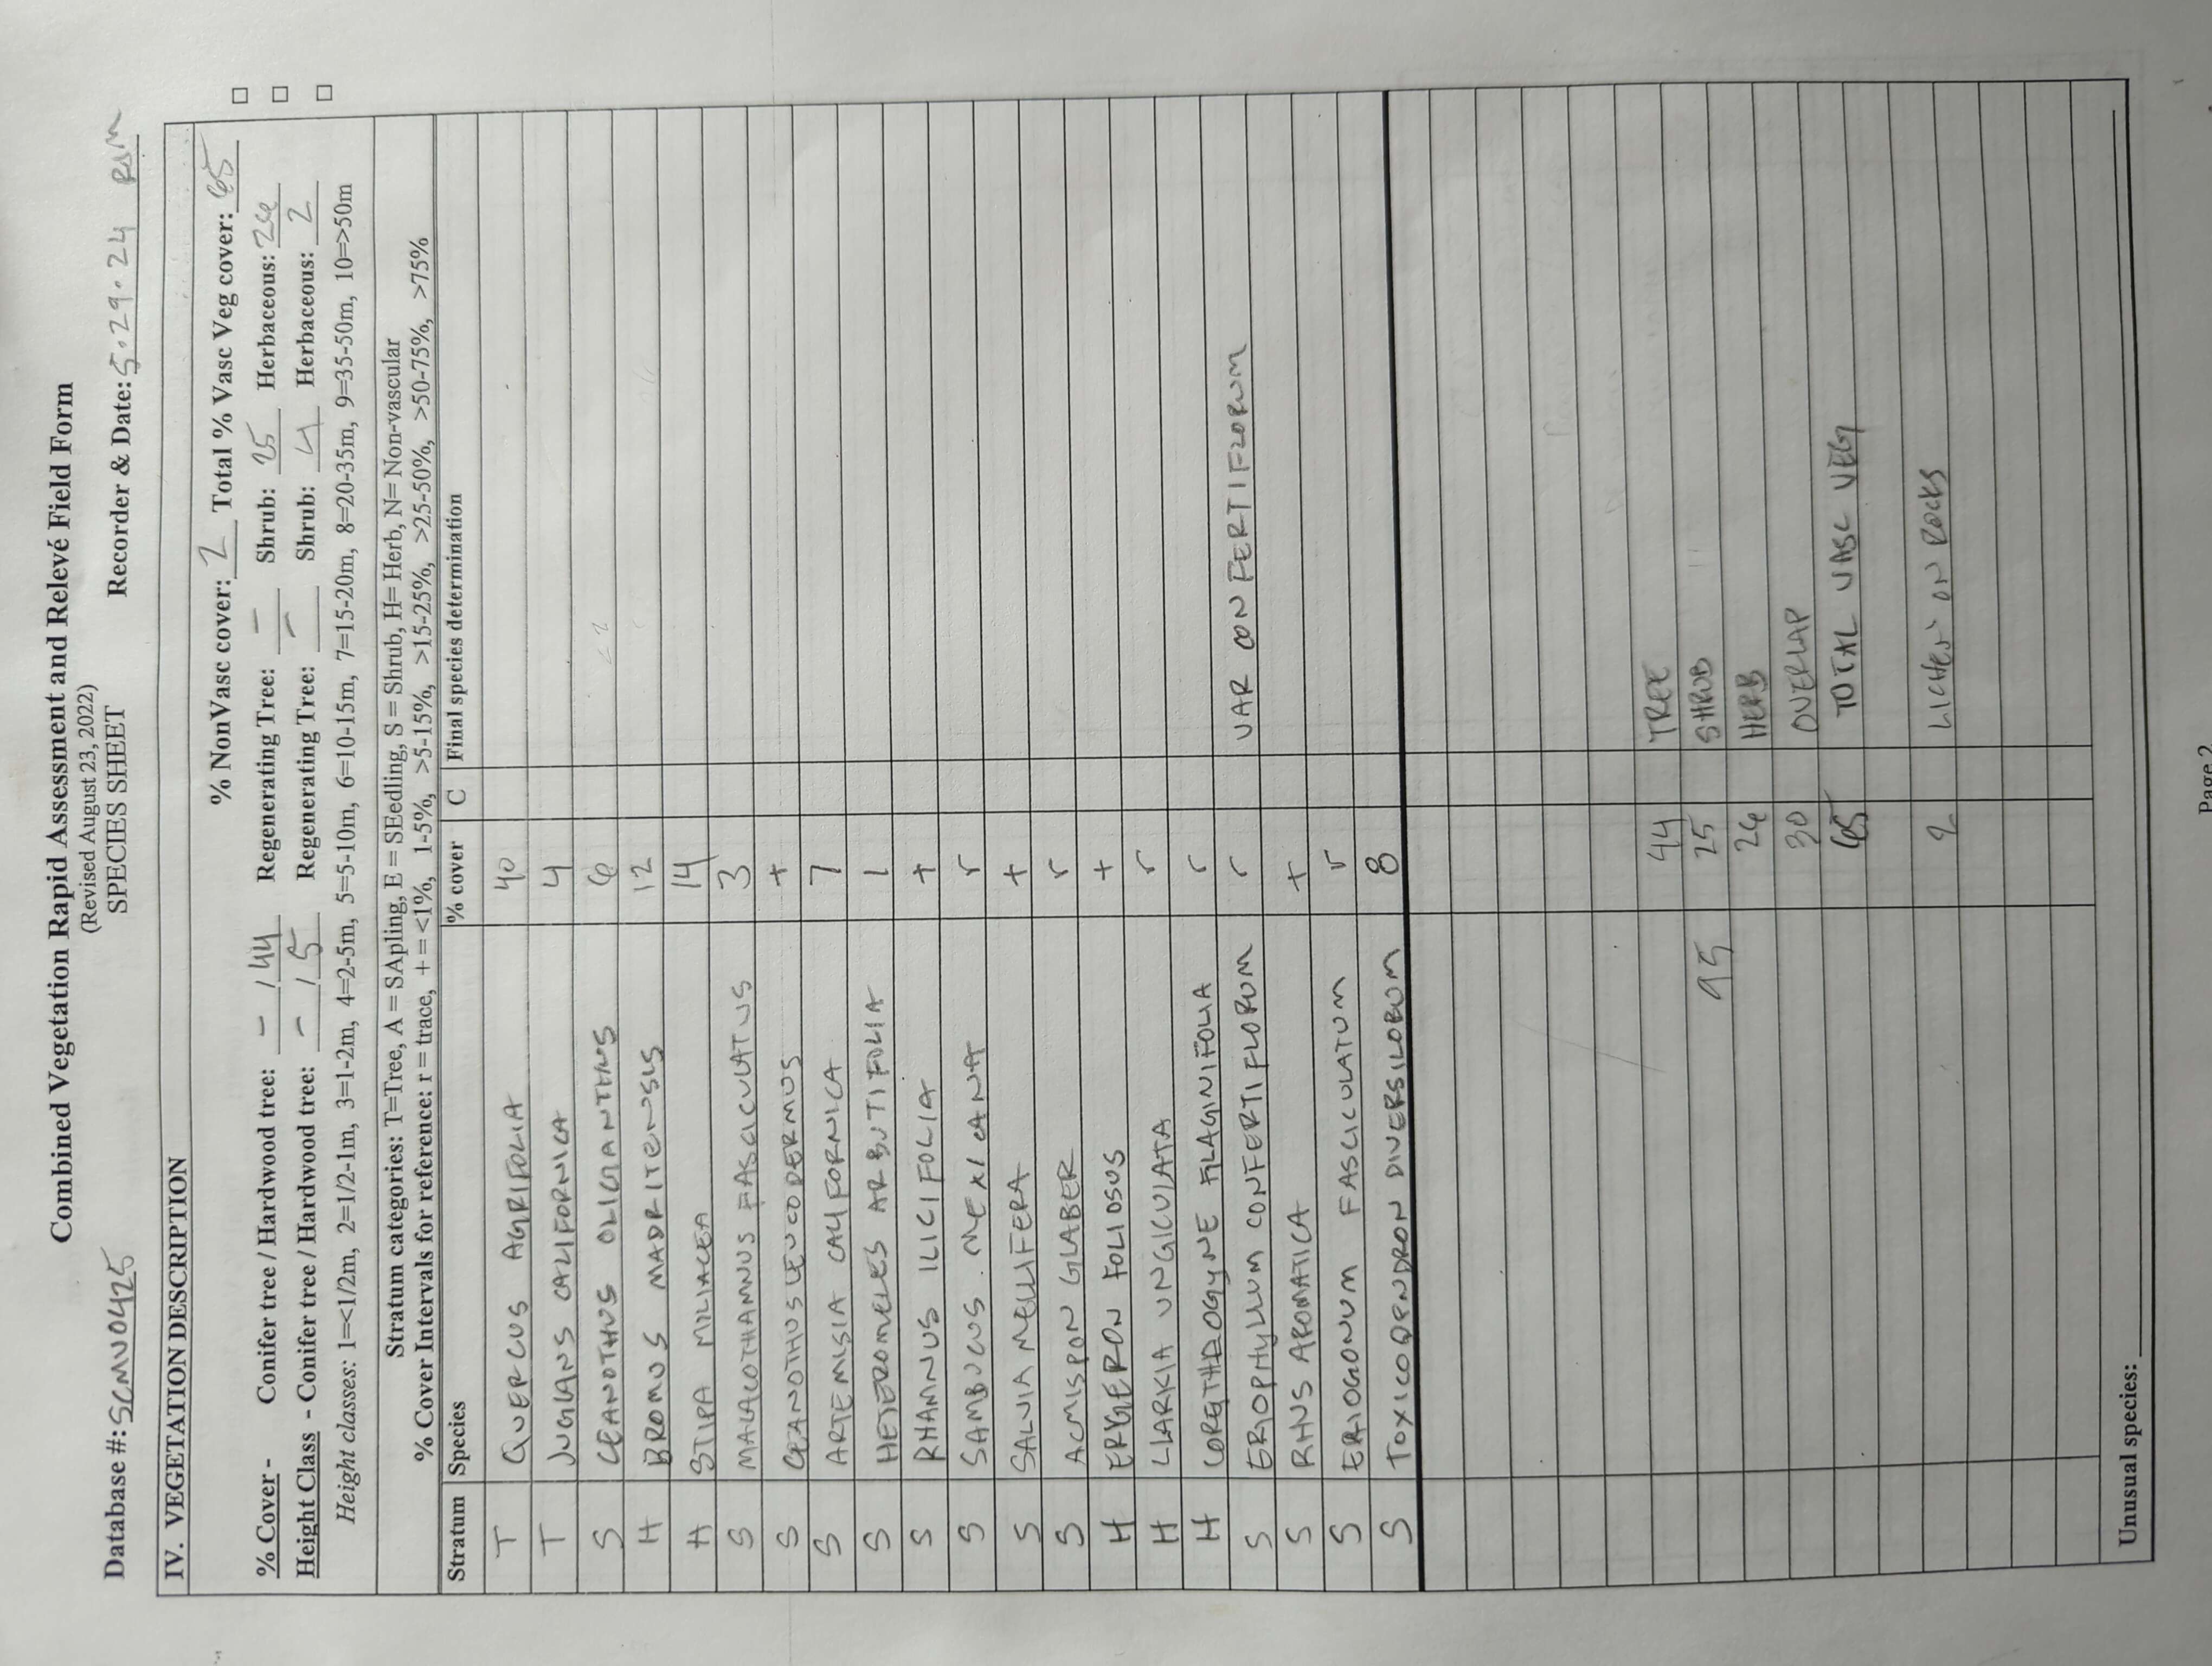 Combined Vegetation Rapid Assessment and Relevé Field Form
(Revised August 23, 2022)
SPECIES SHEET
Database #: SCMU0425 Recorder & Date: 5.29.24 RSM
IV. VEGETATION DESCRIPTION
% NonVasc cover: 2 Total % Vasc Veg cover: 65 □
% Cover - Conifer tree / Hardwood tree: - / 44 Regenerating Tree: - Shrub: 25 Herbaceous: 26 □
Height Class - Conifer tree / Hardwood tree: - / 5 Regenerating Tree: - Shrub: 4 Herbaceous: 2 □
Height classes: 1=<1/2m, 2=1/2-1m, 3=1-2m, 4=2-5m, 5=5-10m, 6=10-15m, 7=15-20m, 8=20-35m, 9=35-50m, 10=>50m
Stratum categories: T=Tree, A = SApling, E = SEedling, S = Shrub, H= Herb, N= Non-vascular
% Cover Intervals for reference: r = trace, + = <1%, 1-5%, >5-15%, >15-25%, >25-50%, >50-75%, >75%
Stratum Species % cover C Final species determination
T QUERCUS AGRIFOLIA 40
T JUGLANS CALIFORNICA 4
S CEANOTHUS OLIGIANTHUS 6
H BROMUS MADRITENSIS 12
H STIPA MILIACEA 14
S MALACOTHAMNUS FASCICULATUS 3
S CEANOTHUS LEUCODERMUS +
S ARTEMISIA CALIFORNICA 7
S HETEROMELES ARBUTIFOLIA 1
S RHAMNUS ILICIFOLIA +
S SAMBUCUS MEXICANA r
S SALVIA MELLIFERA +
S ACMISPON GLABER r
H ERIGERON FOLIOSUS +
H CLARKIA UNGICULATA r
H CORETHROGYNE FILAGINIFOLIA r
S ERIOPHYLLUM CONFERTIFLORUM r VAR CONFERTIFLORUM
S RHUS AROMATICA +
S ERIOGONUM FASCICULATUM r
S TOXICODENDRON DIVERSILOBUM 8
44 TREE
95 25 SHRUB
26 HERB
30 OVERLAP
65 TOTAL VASC VEG
2 LICHEN ON ROCKS
Unusual species:
Page 2